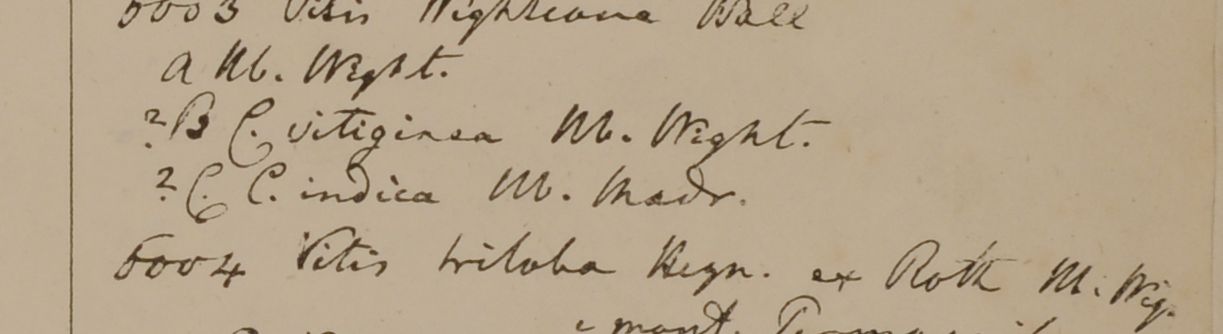 6003 Vitis Wightiana Wall
a Hb. Wight.
? B C. vitiginea Hb. Wight.
? C. C. indica Hb. Madr.
6004 Vitis triloba Heyn. ex Roth Hb. Wig.
e mont.